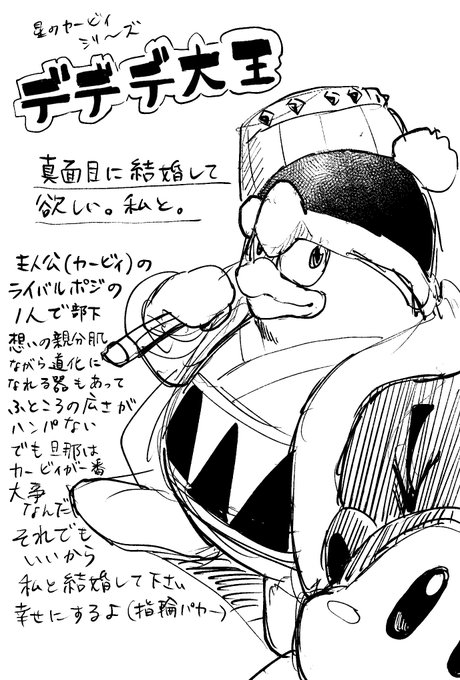 星のカービィ
シリーズ
デデデ大王
真面目に結婚して
欲しい。私と。
主人公(カービィ)の
ライバルポジの
1人で部下
想いの親分肌
ながら道化に
なれる器もあって
ふところの広さが
ハンパない
でも旦那は
カービィが一番
大事
なんだ
それでも
いいから
私と結婚して下さい
幸せにするよ(指輪パカー)